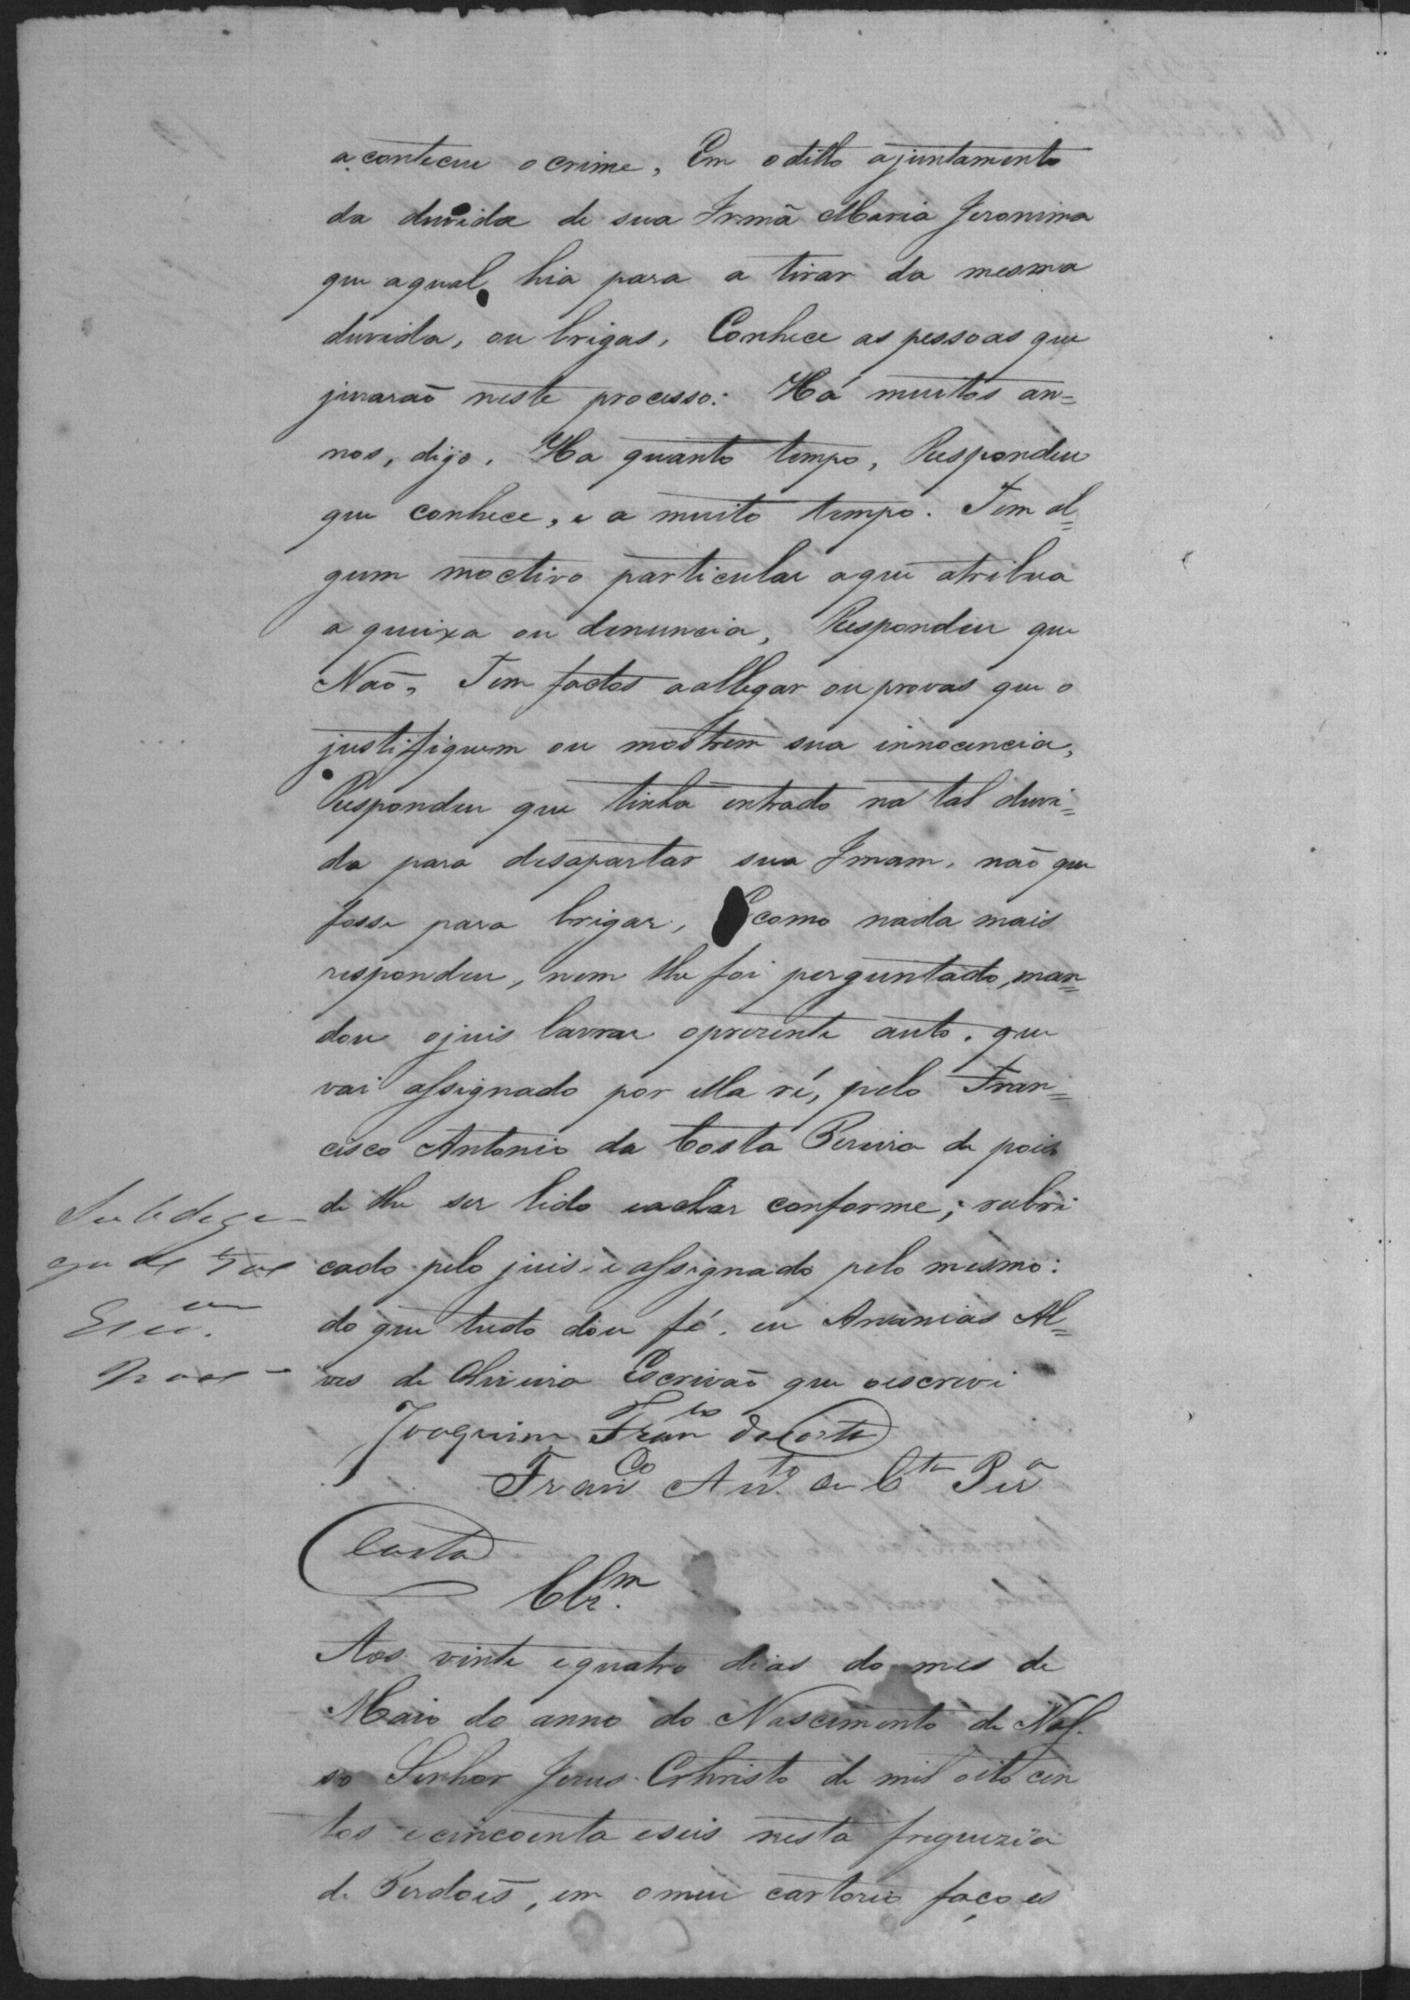 aconteceu o crime, Em o ditto ajuntamento
da duvida de sua Irmã Maria Jeronima
que aqual hia para a tirar da mesma
duvida, ou brigas, Conhece as pessoas que
jurarão neste processo: Há muitos an=
nos, digo. Ha quanto tempo, Respondeu
que conhece, e a muito tempo. Tem al=
gum moctivo particular aque atribua
a queixa ou denuncia, Respondeu que
Não, Tem factos aallegar ou provas que o
justifiquem ou mostrem sua innocencia,
Respondeu que tinha entrado na tal duvi=
da para desapartar sua Irmam, não que
fosse para brigar, Ecomo nada mais
respondeu, nem lhe foi perguntado, man=
dou ojuis lavrar oprezente auto, que
vai assignado por ella ré, pelo Fran=
cisco Antonio da Costa Pereira de pois
de lhe ser lido eachar conforme; rubri
cado pelo juis e assignado pelo mesmo:
do que tudo dou fé. eu Ananias Al=
ves de Oliveira Escrivão que oescrevi
Joaquim Fran^co da Costa
Fran^co Ant^o da C^ta Per^a
Costa
Clz^m.
Aos vinte equatro dias do mes de
Maio do anno do Nascimento de Nos
so Senhor Jesus Christo de mil oito cen
tos ecincoenta eseis nesta freguezia
de Perdoẽs, em omeu cartorio faço es